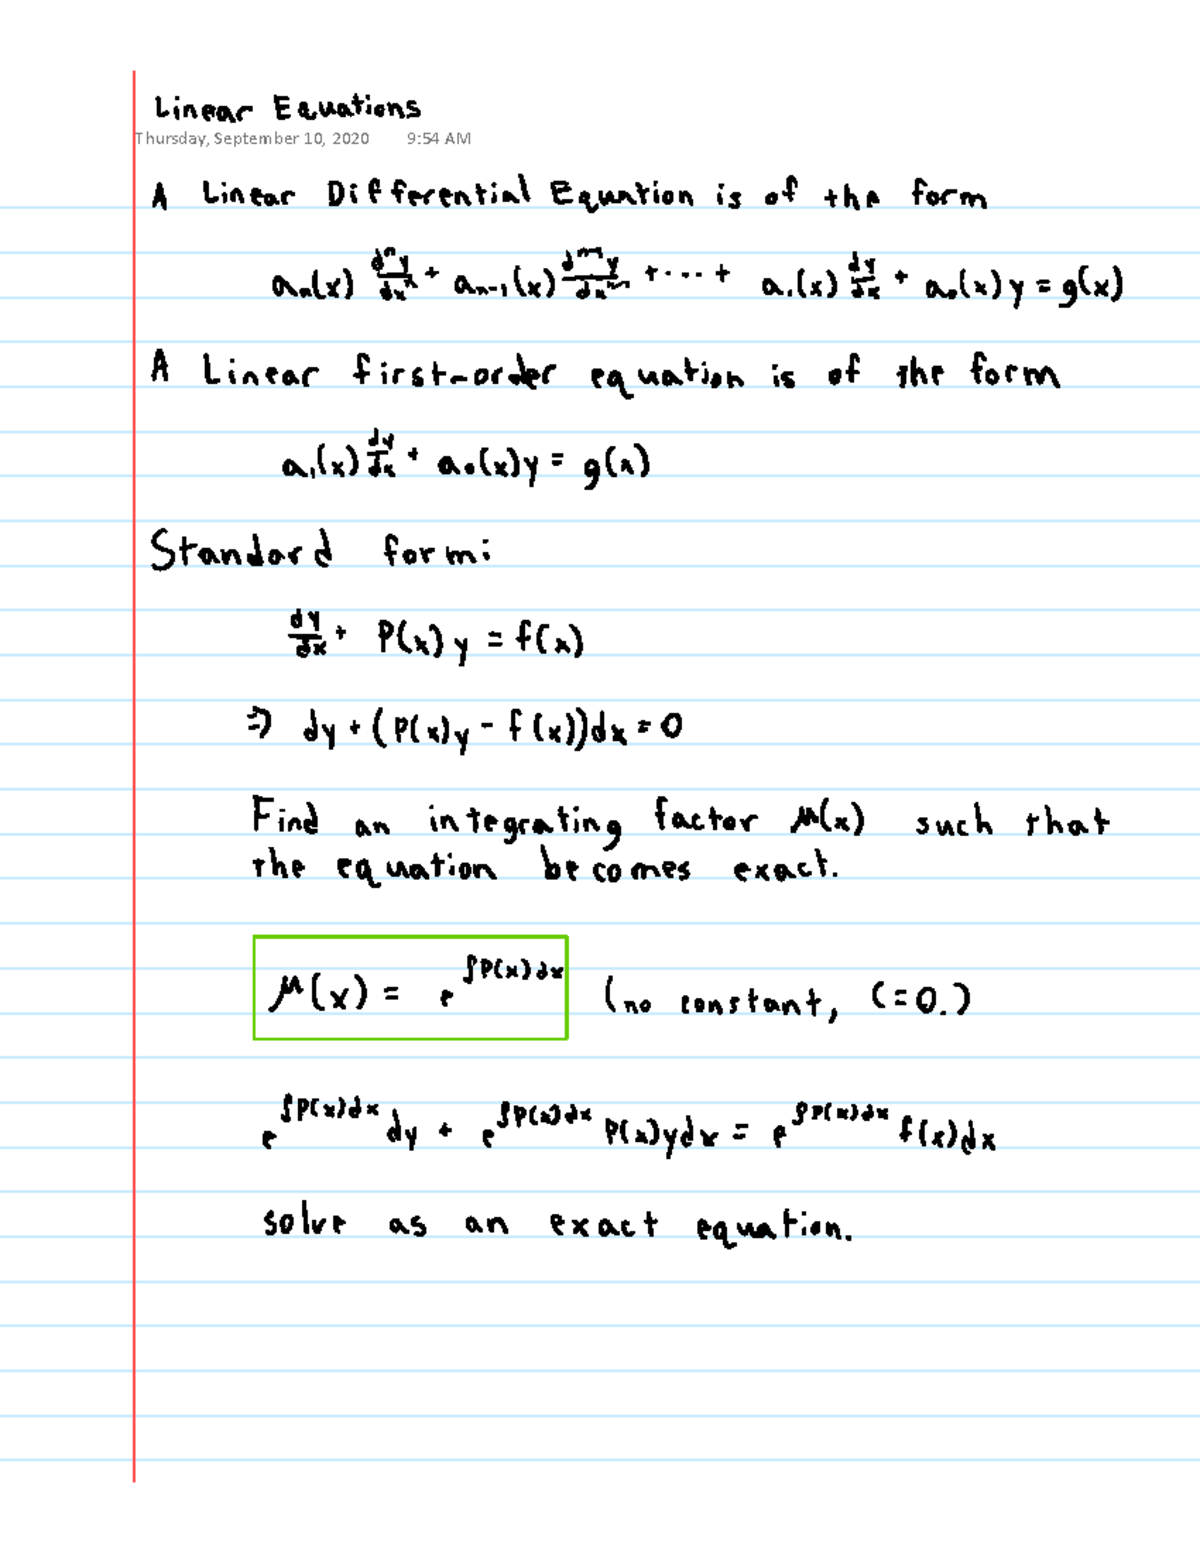 Linear Equations
Thursday, September 10, 2020 9:54 AM
A Linear Differential Equation is of the form
aₙ(x) dⁿy/dxⁿ + aₙ₋₁(x) dⁿ⁻¹y/dxⁿ⁻¹ + ... + a₁(x) dy/dx + a₀(x) y = g(x)
A Linear first-order equation is of the form
a₁(x) dy/dx + a₀(x)y = g(x)
Standard form:
dy/dx + P(x) y = f(x)
⇒ dy + (P(x)y - f(x))dx = 0
Find an integrating factor μ(x) such that
the equation becomes exact.
μ(x) = e^∫P(x)dx (no constant, C=0.)
e^∫P(x)dx dy + e^∫P(x)dx P(x)ydx = e^∫P(x)dx f(x)dx
solve as an exact equation.